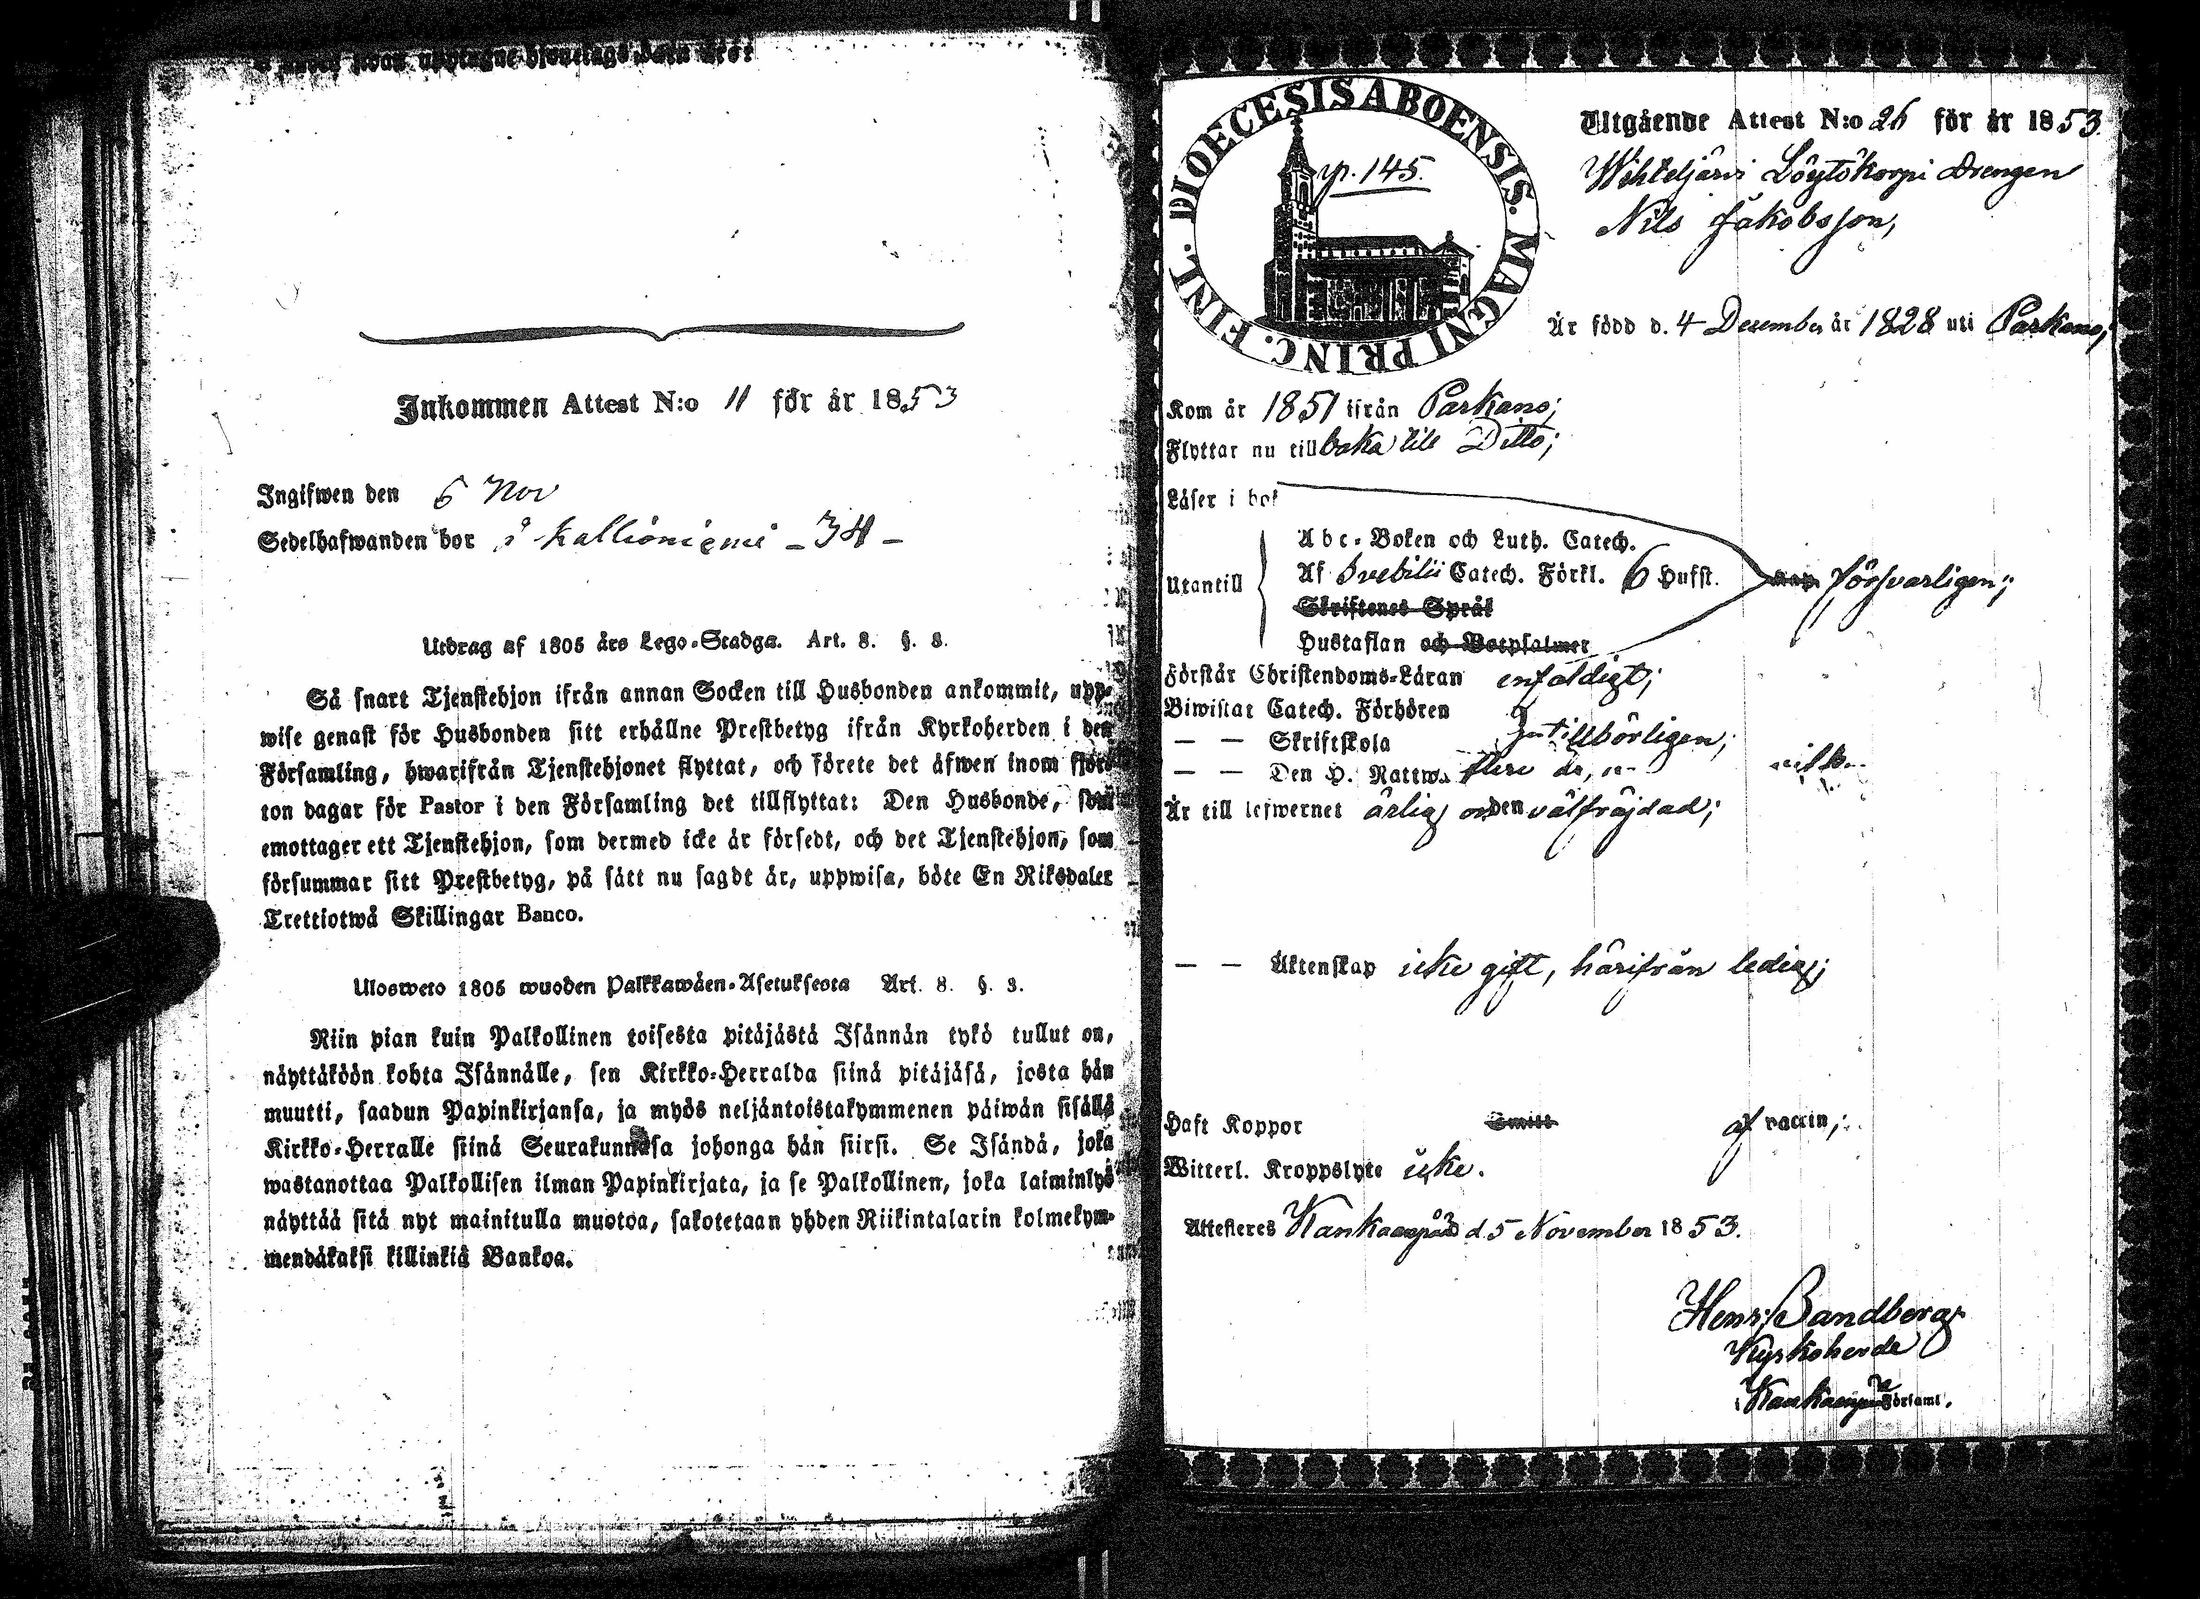 Inkommen Attest N:o 11 för år 1853
Ingifwen den 6 Nov
Sedelhafwanden bor å Kallioniemi - 34 -
Utdrag af 1805 års Lego-Stadga. Art. 8. §. 3.
Så snart Tjenstehjon ifrån annan Socken till Husbonden ankommit, upp-
wise genast för Husbonden sitt erhållne Prestbetyg ifrån Kyrkoherden i den
Församling, hwarifrån Tjenstehjonet flyttat, och förete det äfwen inom fjor-
ton dagar för Pastor i den Församling det tillflyttat: Den Husbonde, som
emottager ett Tjenstehjon, som dermed icke är försedt, och det Tjenstehjon, som
försummar sitt Prestbetyg, på sätt nu sagdt är, uppwisa, böte En Riksdaler
Trettiotwå Skillingar Banco.
Ulosweto 1805 wuoden Palkkawäen-Asetuksesta Art. 8. §. 3.
Niin pian kuin Palkollinen toisesta pitäjästä Isännän tykö tullut on,
näyttäköön kohta Isännälle, sen Kirkko-Herralda siinä pitäjäsä, josta hän
muutti, saadun Papinkirjansa, ja myös neljäntoistakymmenen päiwän sisällä
Kirkko-Herralle siinä Seurakunnasa johonga hän siirsi. Se Isändä, joka
wastanottaa Palkollisen ilman Papinkirjata, ja se Palkollinen, joka laiminlyö
näyttää sitä nyt mainitulla muotoa, sakotetaan yhden Riikintalarin kolmekym-
mendäkaksi killinkiä Bankoa.
DIOECESIS ABOENSIS. MAGNI PRINC. FINL.
p. 145.
Utgående Attest N:o 26 för år 1853.
Wihteljärvi Löytökorpi Drengen
Nils Jakobsson,
Är född d. 4 December år 1828 uti Parkano;
Kom år 1851 ifrån Parkano;
Flyttar nu tillbaka till Ditto;
Läser i bok
Abc-Boken och Luth. Catech.
Utantill Af Svebilii Catech. Förkl. 6 Hufst. försvarligen;
Skriftenes Språk
Hustaflan och Botpsalmer
Förstår Christendoms-Läran enfaldigt;
Biwistat Catech. Förhören
— — Skriftskola tillbörligen;
— — Den H. Nattw.
Är till lefwernet ärlig och välfräjdad;
— — Äktenskap icke gift, härifrån ledig;
Haft Koppor Smitt af vaccin;
Witterl. Kroppslyte icke.
Attesteres Kankaanpää d. 5 November 1853.
Henr. Sandberg
Kyrkoherde
i Kankaanpää Församl.